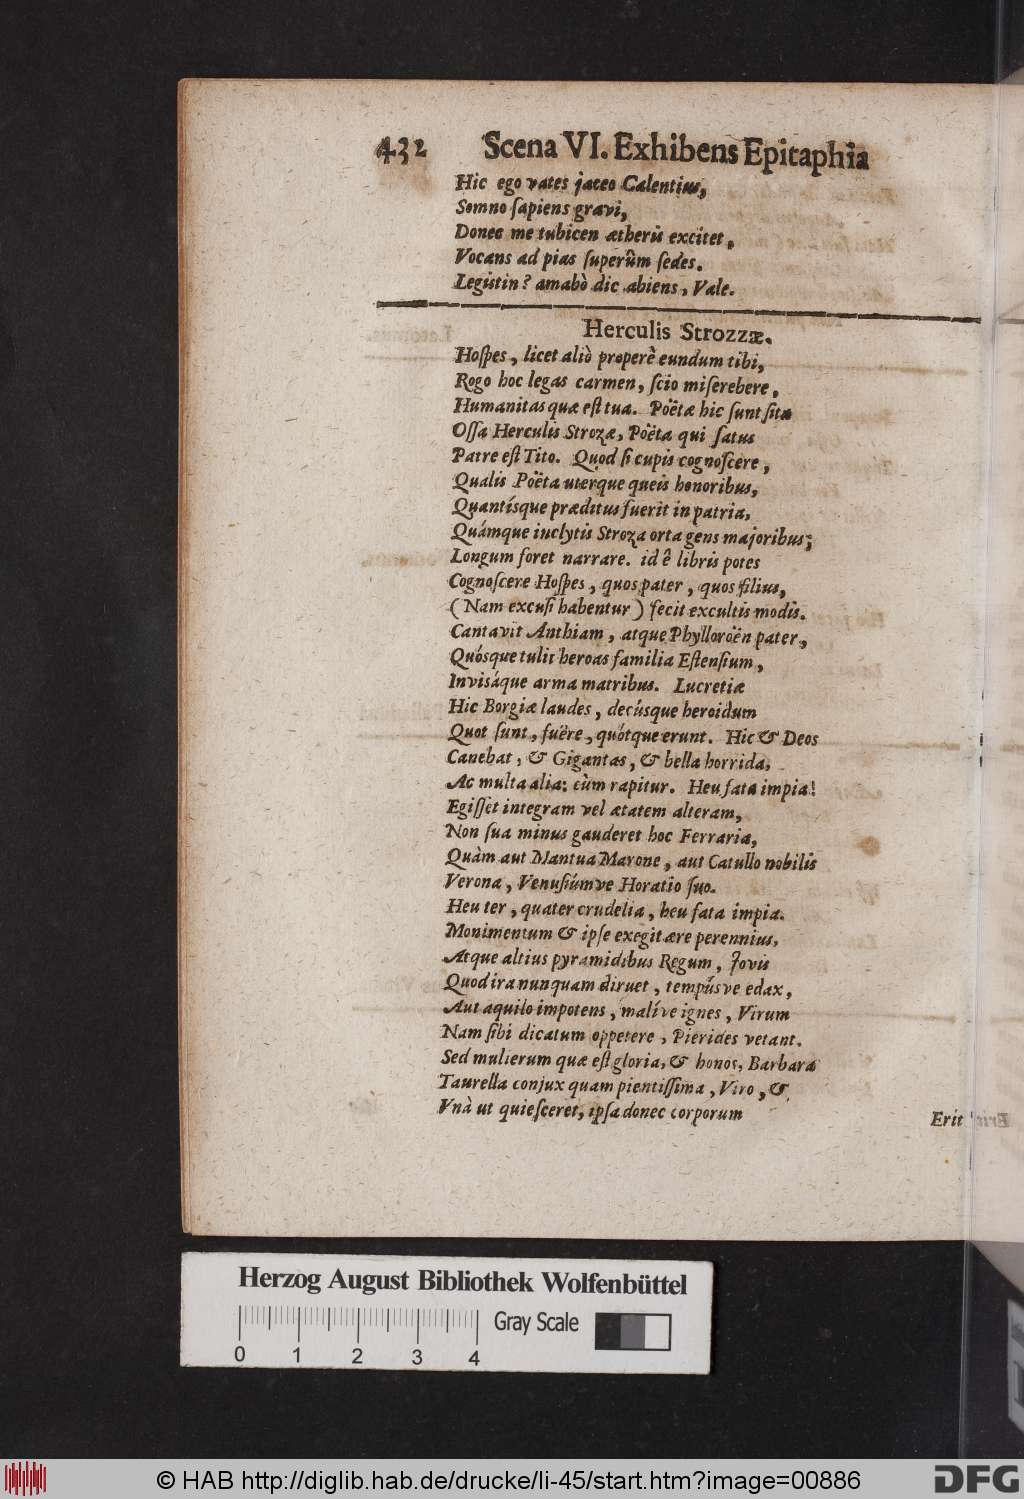 432 Scena VI. Exhibens Epitaphia
Hic ego vates jaceo Calentius,
Somno ſapiens gravi,
Donec me tubicen ætheris excitet,
Vocans ad pias ſuperûm ſedes.
Legistin? amabò dic abiens, Vale.
Herculis Strozzæ.
Hoſpes, licet aliò properè eundum tibi,
Rogo hoc legas carmen, ſcio miſerebere,
Humanitas quæ eſt tua. Poëtæ hic ſunt ſita
Oſſa Herculis Strozæ, Poëta qui ſatus
Patre eſt Tito. Quod ſi cupis cognoſcere,
Qualis Poëta uterque queis honoribus,
Quantísque præditus fuerit in patria,
Quámque inclytis Stroza orta gens majoribus;
Longum foret narrare. id ê libris potes
Cognoſcere Hoſpes, quos pater, quos filius,
(Nam excuſi habentur) fecit excultis modis.
Cantavit Anthiam, atque Phylloroën pater,
Quósque tulit heroas familia Eſtenſium,
Invisáque arma matribus. Lucretiæ
Hic Borgiæ laudes, decúsque heroidum
Quot ſunt, fuëre, quótque erunt. Hic & Deos
Canebat, & Gigantas, & bella horrida,
Ac multa alia: cùm rapitur. Heu fata impia!
Egiſſet integram vel ætatem alteram,
Non ſua minus gauderet hoc Ferraria,
Quàm aut Mantua Marone, aut Catullo nobilis
Verona, Venuſiúmve Horatio ſuo.
Heu ter, quater crudelia, heu fata impia.
Monimentum & ipſe exegit ære perennius,
Atque altius pyramidibus Regum, Jovis
Quod ira nunquam diruet, tempúsve edax,
Aut aquilo impotens, malíve ignes, Virum
Nam ſibi dicatum oppetere, Pierides vetant.
Sed mulierum quæ eſt gloria, & honos, Barbara
Taurella conjux quam pientiſſima, Viro, &
Vnà ut quieſceret, ipſa donec corporum
Erit
Herzog August Bibliothek Wolfenbüttel
Gray Scale
0 1 2 3 4
© HAB http://diglib.hab.de/drucke/li-45/start.htm?image=00886
DFG